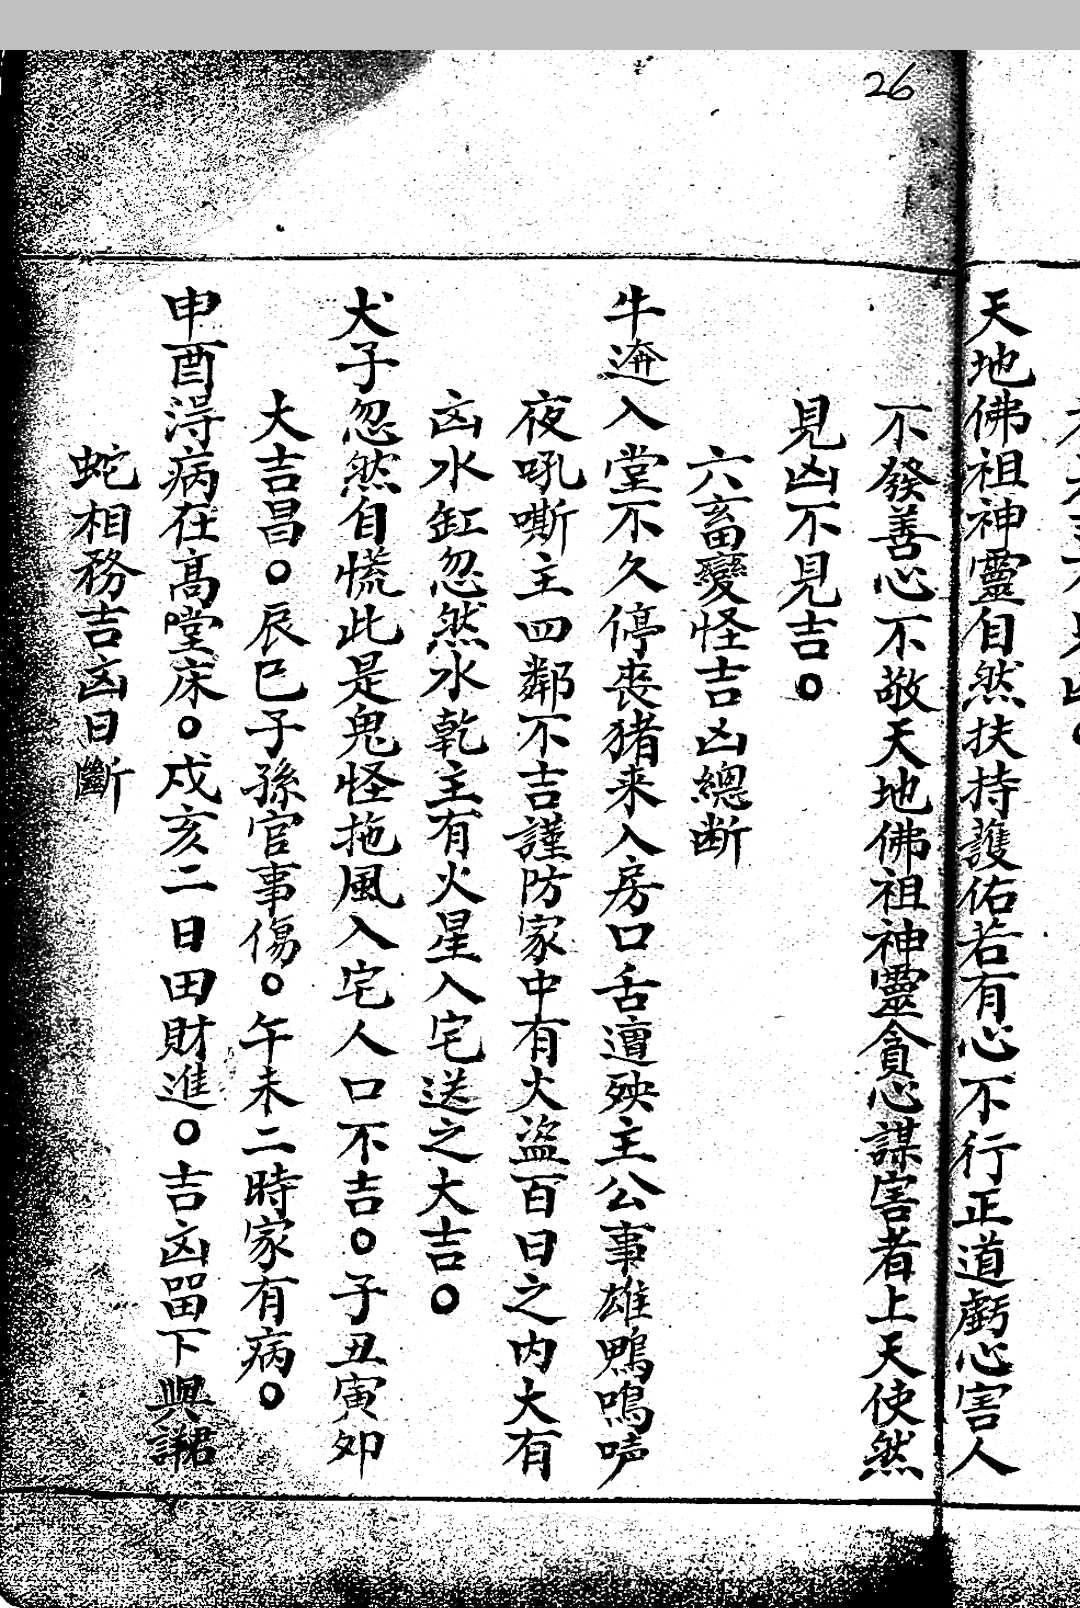 26
天地佛祖神靈自然扶持護佑若有心不行正道虧心害人
不發善心不敬天地佛祖神靈貪心謀害者上天使然
見凶不見吉。
六畜變怪吉凶總断
牛遊入堂不久停丧猪来入房口舌遭殃主公事雄鴨鳴吵
夜吼嘶主四鄰不吉謹防家中有火盗百日之内大有
凶水缸忽然水乾主有火星入宅送之大吉。
犬子忽然自慌此是鬼怪拖風入宅人口不吉。子丑寅卯
大吉昌。辰巳子孫官事傷。午未二時家有病。
申酉得病在高堂床。戍亥二日田財進。吉凶留下與諸
蛇相務吉凶日斷